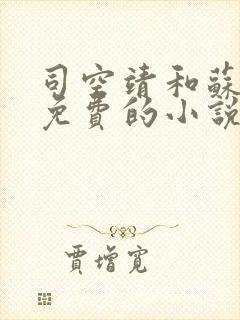 司空靖和蘇
免費的小說
賈增寬